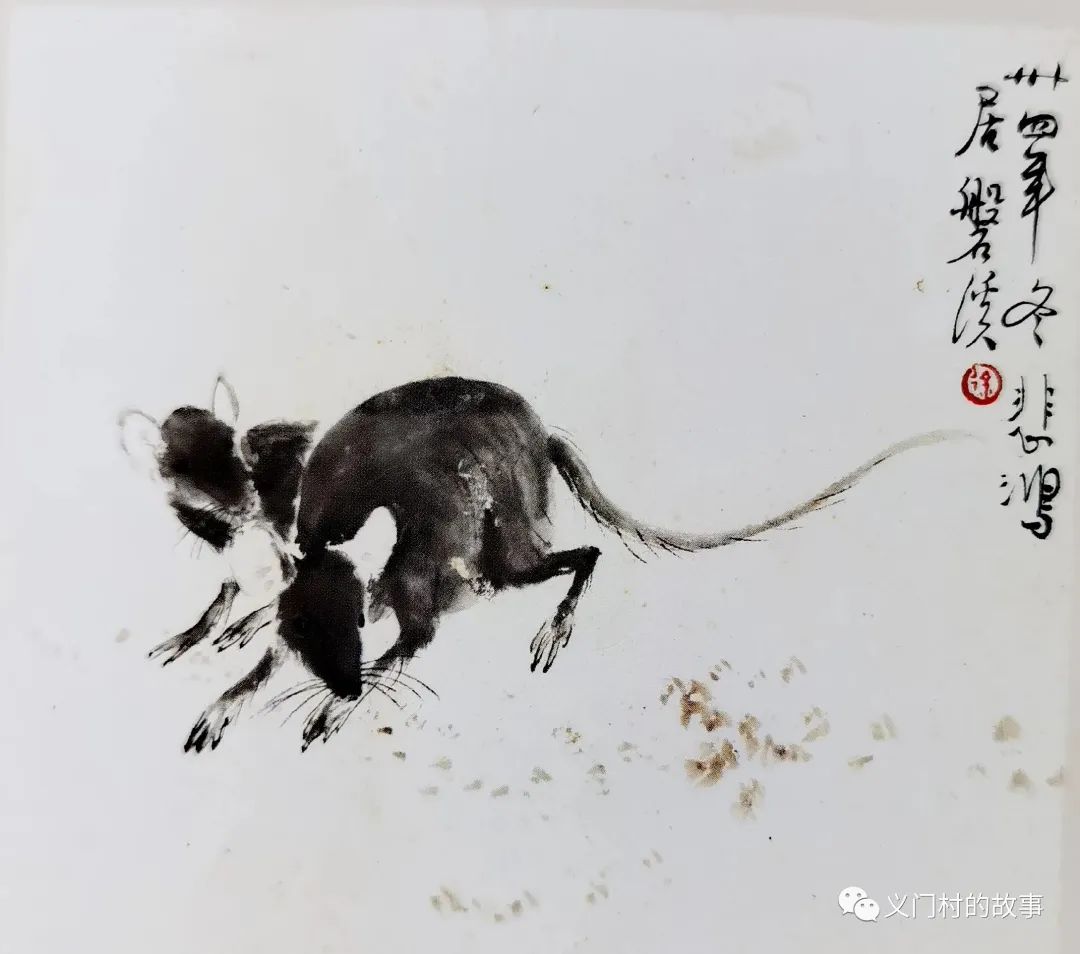 卅四年冬悲鴻
居磐溪
徐
义门村的故事